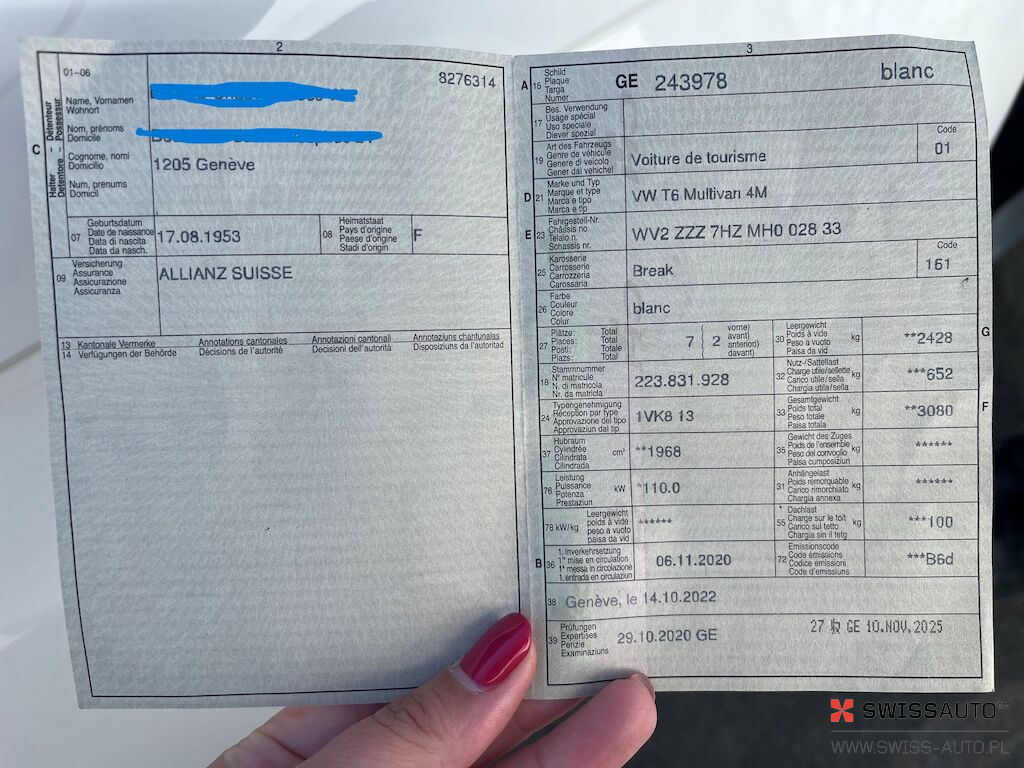 2
01–06
8276314
C
Halter – Détenteur
Detentore – Possessur
Name, Vornamen
Wohnort
Nom, prénoms
Domicile
Cognome, nomi
Domicilio
Num, prenums
Domicil
1205 Genève
07
Geburtsdatum
Date de naissance
Data di nascita
Data da nasch.
17.08.1953
08
Heimatstaat
Pays d'origine
Paese d'origine
Stadi d'origin
F
09
Versicherung
Assurance
Assicurazione
Assicuranza
ALLIANZ SUISSE
13 Kantonale Vermerke Annotations cantonales Annotazioni cantonali Annotaziuns chantunalas
14 Verfügungen der Behörde Décisions de l'autorité Decisioni dell'autorità Disposiziuns da l'autoritad
3
A 15
Schild
Plaque
Targa
Numer
GE 243978 blanc
17
Bes. Verwendung
Usage spécial
Uso speciale
Diever spezial
19
Art des Fahrzeugs
Genre de véhicule
Genere di veicolo
Gener dal vehichel
Voiture de tourisme
Code
01
D 21
Marke und Typ
Marque et type
Marca e tipo
Marca e tip
VW T6 Multivan 4M
E 23
Fahrgestell-Nr.
Châssis no
Telaio n.
Schassis nr.
WV2 ZZZ 7HZ MH0 028 33
25
Karosserie
Carrosserie
Carrozzeria
Carossaria
Break
Code
161
26
Farbe
Couleur
Colore
Colur
blanc
27
Plätze: Total
Places: Total
Posti: Totale
Plazs: Total
7 { 2
vorne)
avant)
anteriori)
davant)
30
Leergewicht
Poids à vide
Peso a vuoto
Paisa da vid
kg
**2428
G
18
Stammnummer
N° matricule
N. di matricola
Nr. da matricla
223.831.928
32
Nutz-/Sattellast
Charge utile/sellette
Carico utile/sella
Chargia utila/sella
kg
***652
24
Typengenehmigung
Réception par type
Approvazione del tipo
Approvaziun dal tip
1VK8 13
33
Gesamtgewicht
Poids total
Peso totale
Paisa totala
kg
**3080
F
37
Hubraum
Cylindrée
Cilindrata
Cilindrada
cm³
**1968
35
Gewicht des Zuges
Poids de l'ensemble
Peso del convoglio
Paisa cumposiziun
kg
******
76
Leistung
Puissance
Potenza
Prestaziun
kW
*110.0
31
Anhängelast
Poids remorquable
Carico rimorchiato
Chargia annexa
kg
******
78 kW/kg
Leergewicht
poids à vide
peso a vuoto
paisa da vid
******
55
Dachlast
Charge sur le toit
Carico sul tetto
Chargia sin il tetg
kg
***100
B 36
1. Inverkehrsetzung
1re mise en circulation
1a messa in circolazione
1. entrada en circulaziun
06.11.2020
72
Emissionscode
Code émissions
Codice emissioni
Code d'emissiuns
***B6d
38
Genève, le 14.10.2022
39
Prüfungen
Expertises
Perizie
Examinaziuns
29.10.2020 GE
27 GE 10.NOV.2025
SWISSAUTO
WWW.SWISS-AUTO.PL